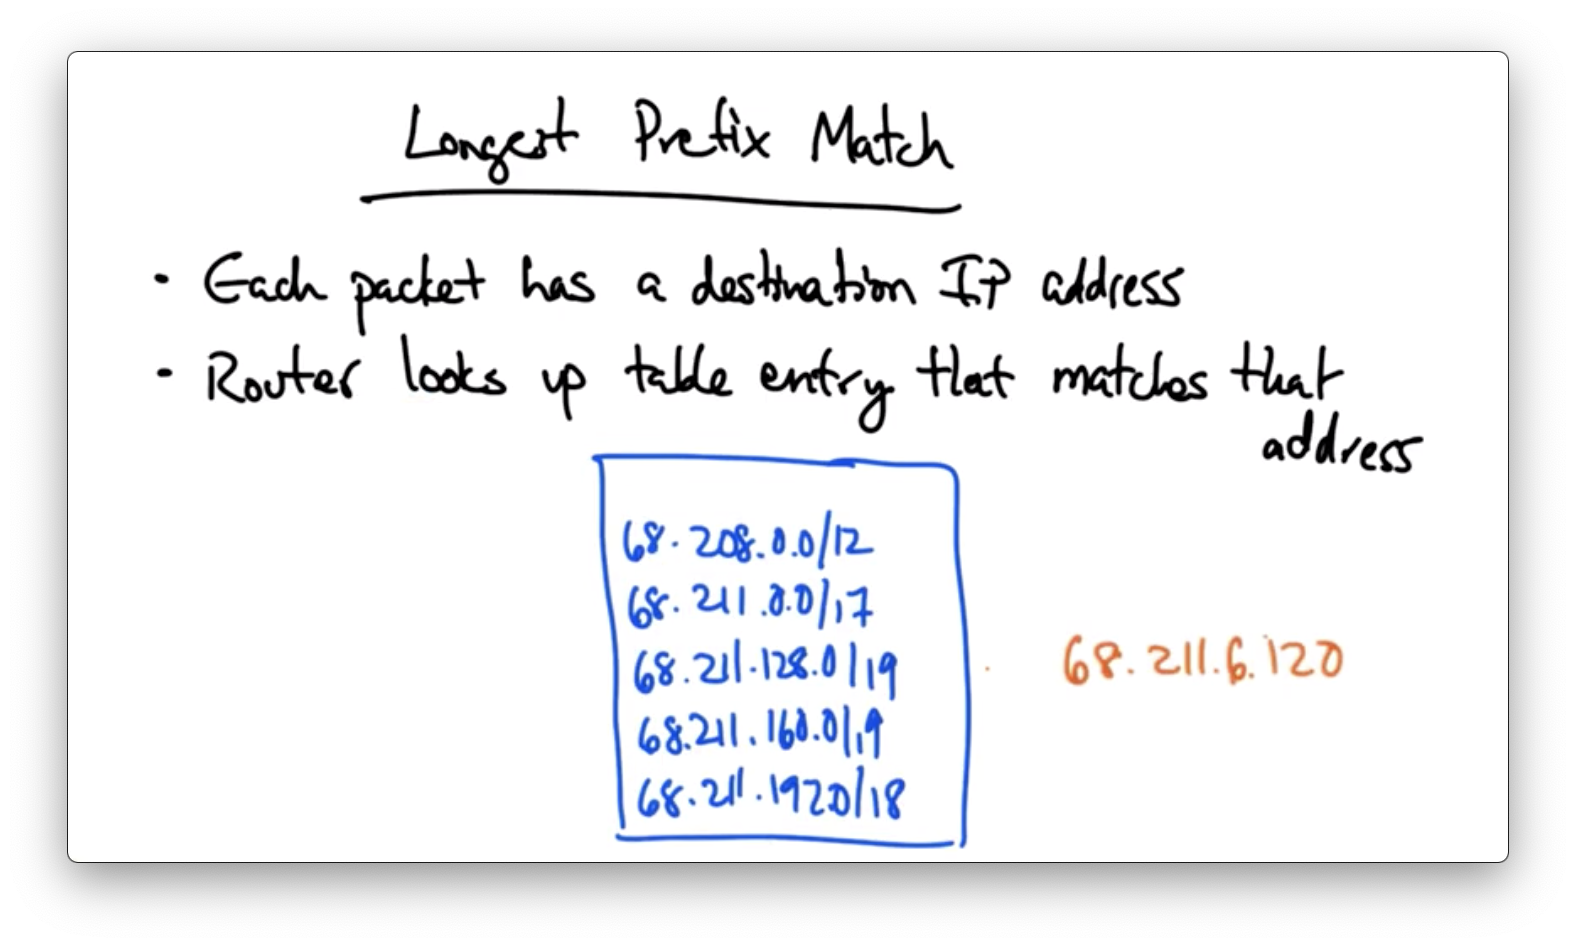 Longest Prefix Match
• Each packet has a destination IP address
• Router looks up table entry that matches that
address
68.208.0.0/12
68.211.0.0/17
68.211.128.0/19
68.211.160.0/19
68.211.192.0/18
68.211.6.120